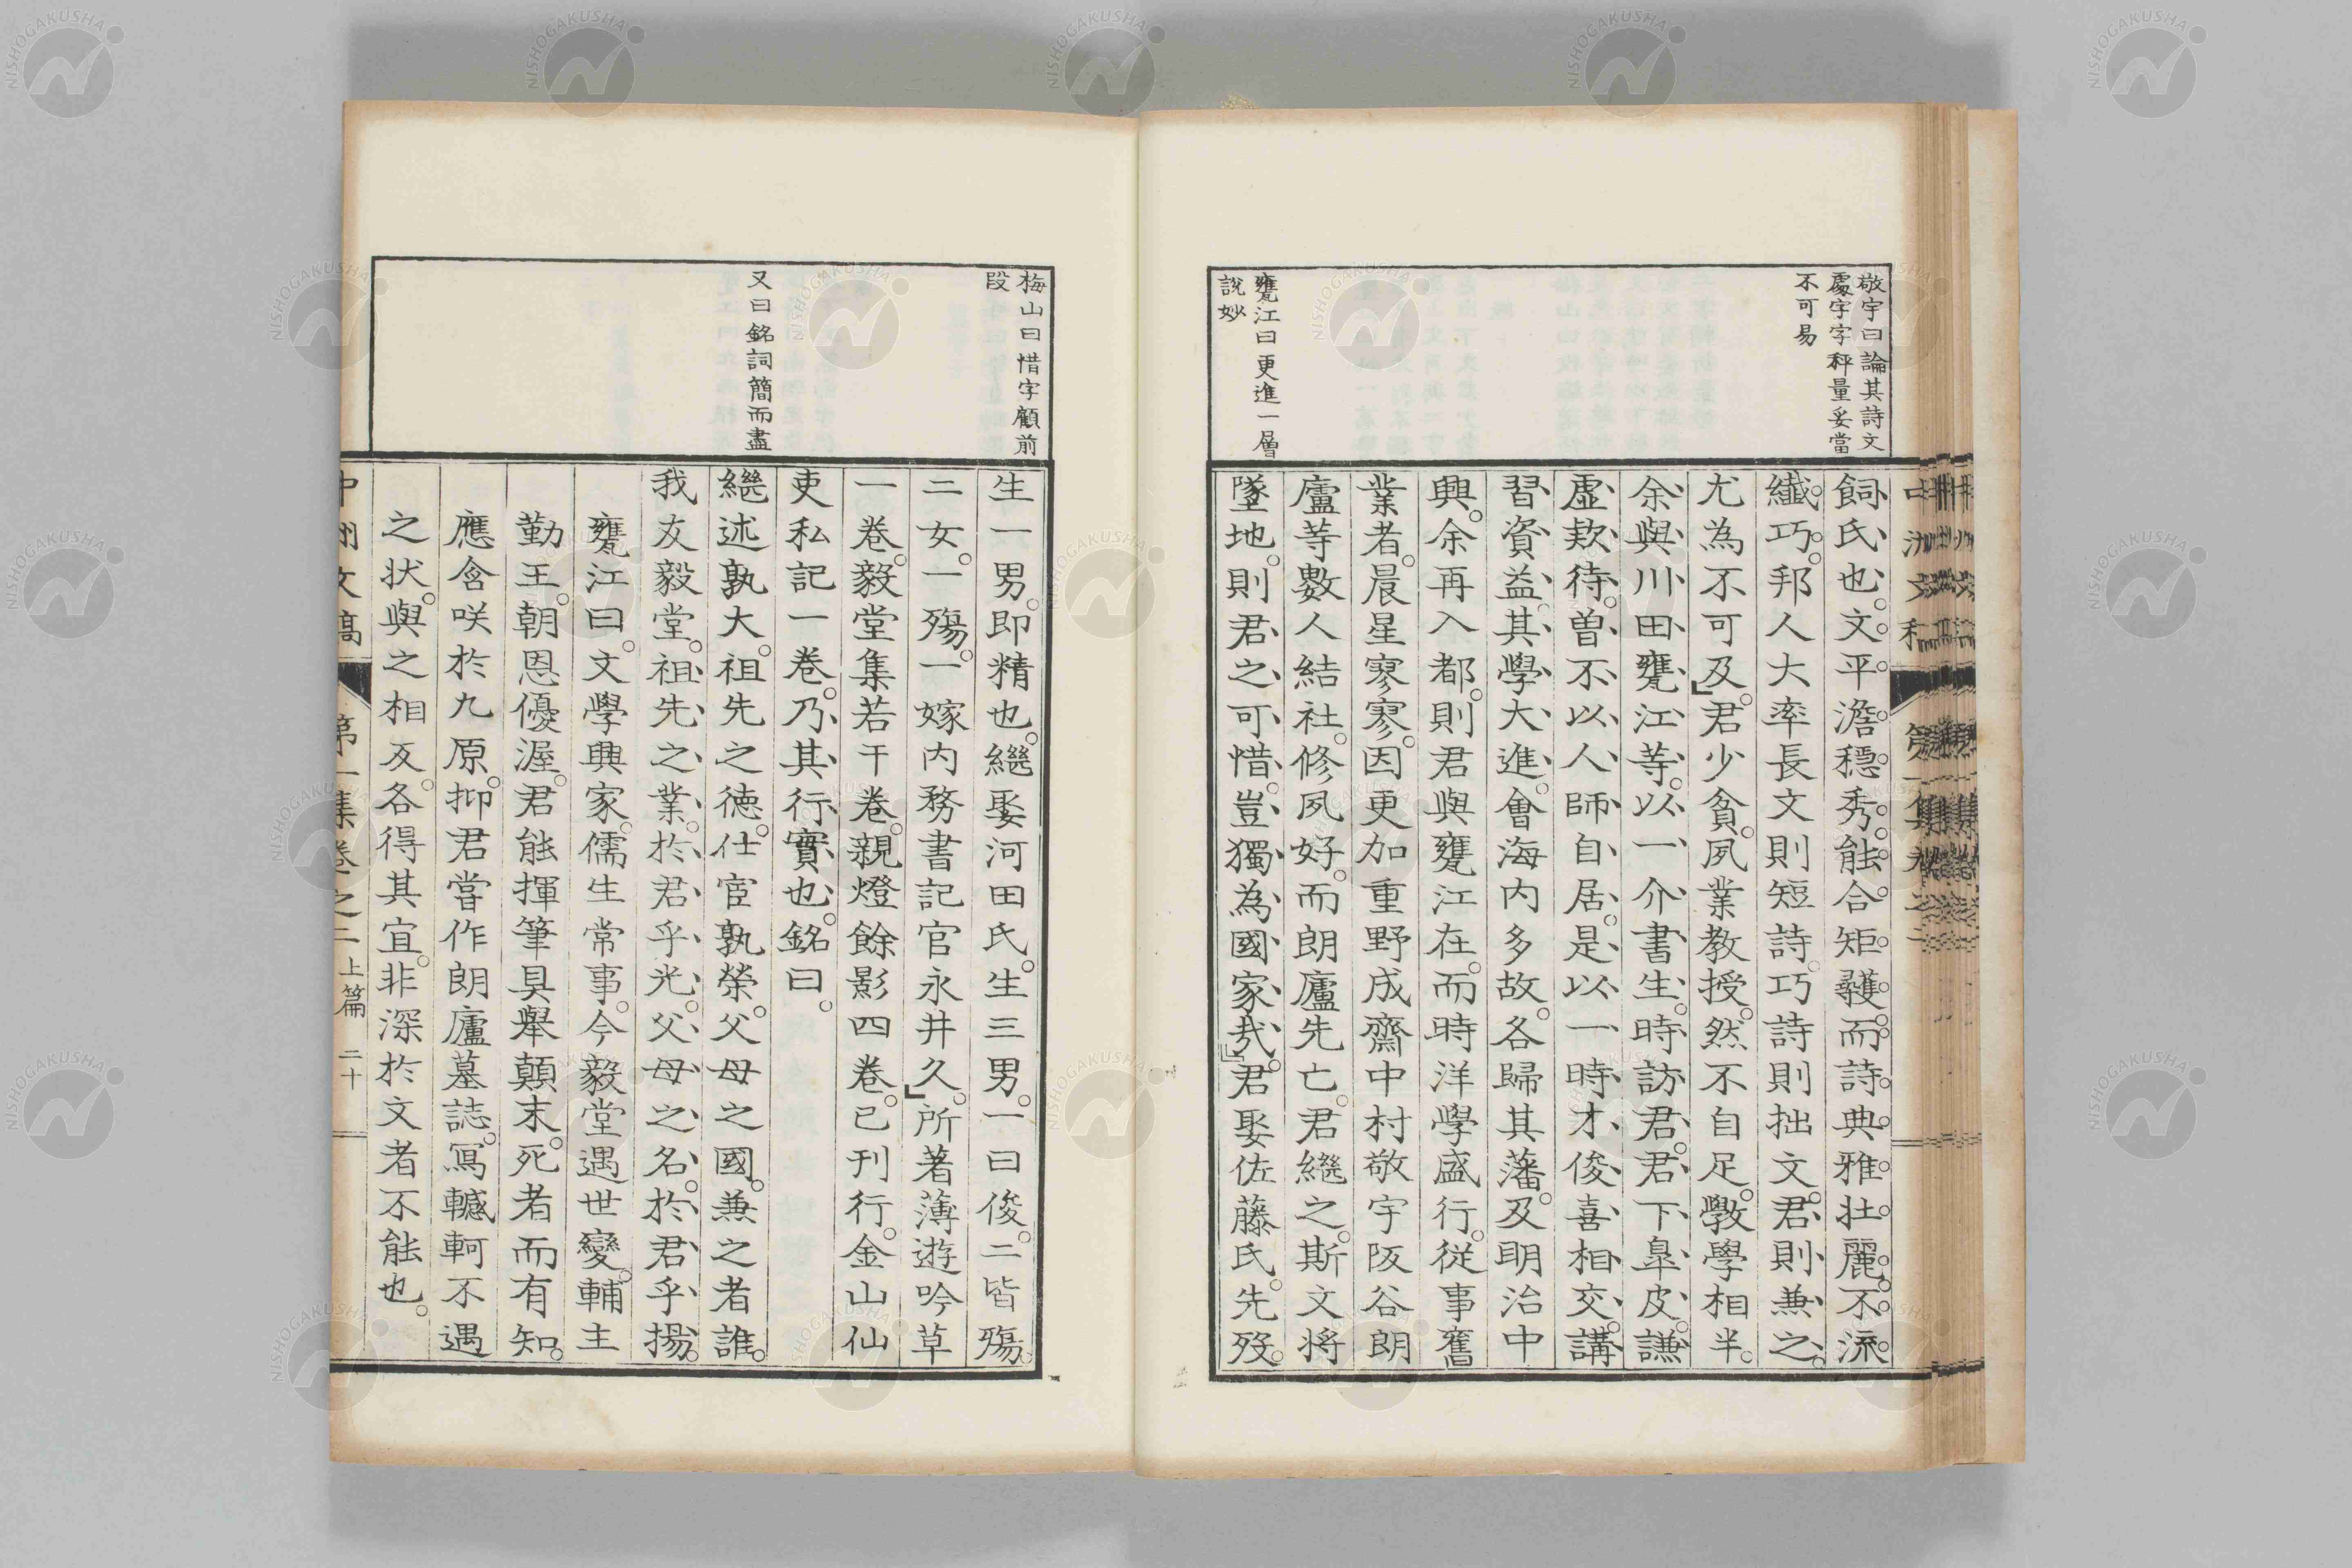 敬宇曰論其詩文
處字字秤量妥當
不可易
甕江曰更進一層
說妙
飼氏也。文平澹穩秀。能合矩矱。而詩典雅壯麗。不流
纎巧。邦人大率長文則短詩。巧詩則拙文。君則兼之。
尤為不可及。君少貧。夙業教授。然不自足。斅學相半。
余與川田甕江等。以一介書生。時訪君。君下皐皮。謙
虛欵待。曽不以人師自居。是以一時才俊喜相交。講
習資益。其學大進。會海内多故。各歸其藩。及明治中
興。余再入都。則君與甕江在。而時洋學盛行。從事舊
業者。晨星寥寥。因更加重野成齋中村敬宇阪谷朗
廬等數人結社。修夙好。而朗廬先亡。君繼之。斯文將
墜地。則君之可惜。豈獨為國家哉。君娶佐藤氏。先歿。
梅山曰惜字顧前
段
又曰銘詞簡而盡
生一男。即精也。繼娶河田氏。生三男。一曰俊。二皆殤。
二女。一殤。一嫁内務書記官永井久。所著薄遊吟草
一卷。毅堂集若干卷。親燈餘影四卷。已刊行。金山仙
吏私記一卷。乃其行實也。銘曰。
繼述孰大。祖先之德。仕宦孰榮。父母之國。兼之者誰。
我友毅堂。祖先之業。於君乎光。父母之名。於君乎揚。
甕江曰。文學興家。儒生常事。今毅堂遇世變。輔主
勤王。朝恩優渥。君能揮筆具舉顛末。死者而有知。
應含咲於九原。抑君嘗作朗廬墓誌。寫轗軻不遇
之状。與之相反。各得其宜。非深於文者不能也。
中洲文稿 第一集卷之二 上篇 二十